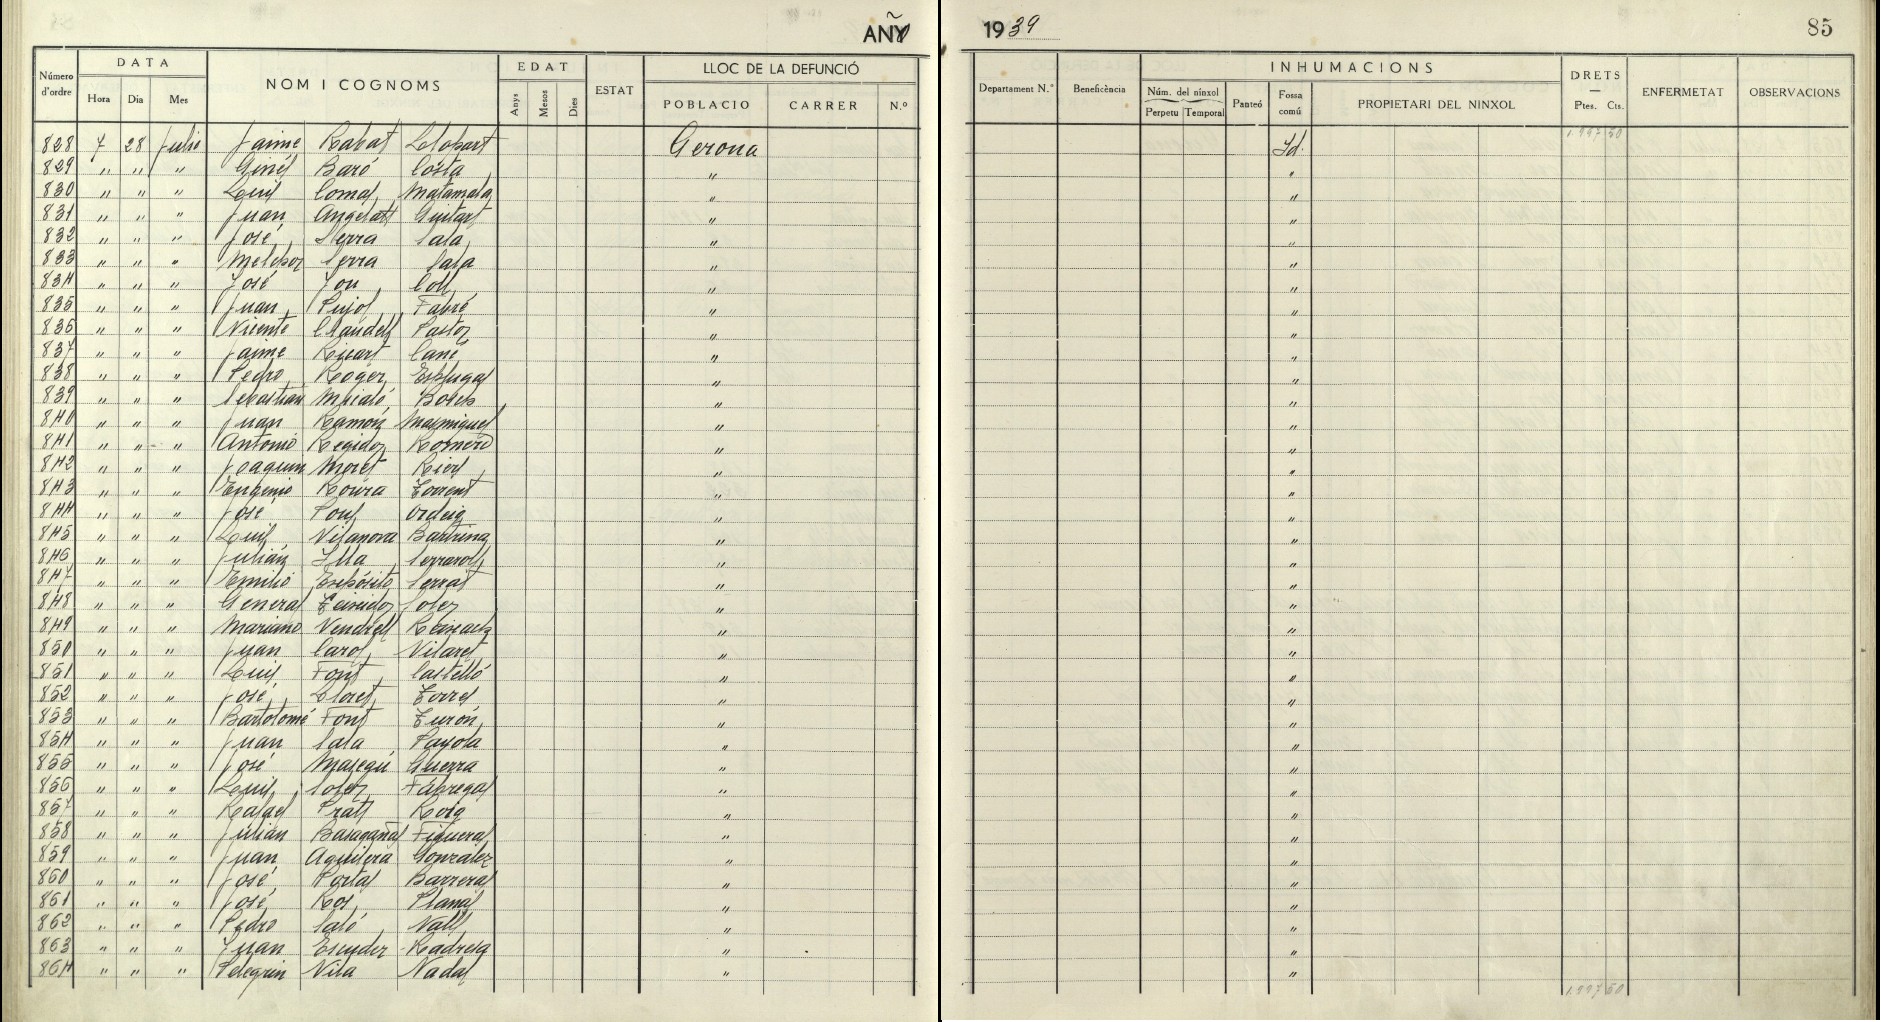 AÑY 1939 85
Número d'ordre DATA Hora Dia Mes NOM I COGNOMS EDAT Anys Mesos Dies ESTAT LLOC DE LA DEFUNCIÓ POBLACIO CARRER N.º
Departament N.º Beneficència INHUMACIONS Núm. del nínxol Perpetu Temporal Panteó Fossa comú PROPIETARI DEL NINXOL DRETS Ptes. Cts. ENFERMETAT OBSERVACIONS
1.997 50
828 7 28 Julio Jaime Rabat Llobart Gerona Id.
829 " " " Ginés Baró Costa " "
830 " " " Luis Comas Matamala " "
831 " " " Juan Angelats Guitart " "
832 " " " José Serra Sala " "
833 " " " Melchor Serra Sala " "
834 " " " José Jou Coll " "
835 " " " Juan Pujol Fabré " "
836 " " " Vicente Claudell Pastor " "
837 " " " Jaime Ricart Cané " "
838 " " " Pedro Roger " "
839 " " " Sebastián Bosch " "
840 " " " Juan Ramón Masmiquel " "
841 " " " Antonio Regidor Romero " "
842 " " " Joaquin Moret Riera " "
843 " " " Eugenio Roura Torrent " "
844 " " " José Pous Ordeig " "
845 " " " Luis Vilanova Bartrina " "
846 " " " Julián Illa Serrarols " "
847 " " " Emilio Expósito Serrat " "
848 " " " General Teixidor Soler " "
849 " " " Mariano Vendrell " "
850 " " " Juan Carol Vilaret " "
851 " " " Luis Font Castelló " "
852 " " " José Lloret Torres " "
853 " " " Bartolomé Font Turón " "
854 " " " Juan Sala Payola " "
855 " " " José Masegú Guerra " "
856 " " " Luis Soler Fábregas " "
857 " " " Rafael Prats Roig " "
858 " " " Julián Basagañas Figueras " "
859 " " " Juan Aguilera Gonzalez " "
860 " " " José Portas Barreras " "
861 " " " José Ros Planas " "
862 " " " Pedro Saló Valls " "
863 " " " Juan Escuder " "
864 " " " Pelegrin Vila Nadal " "
1.997 50